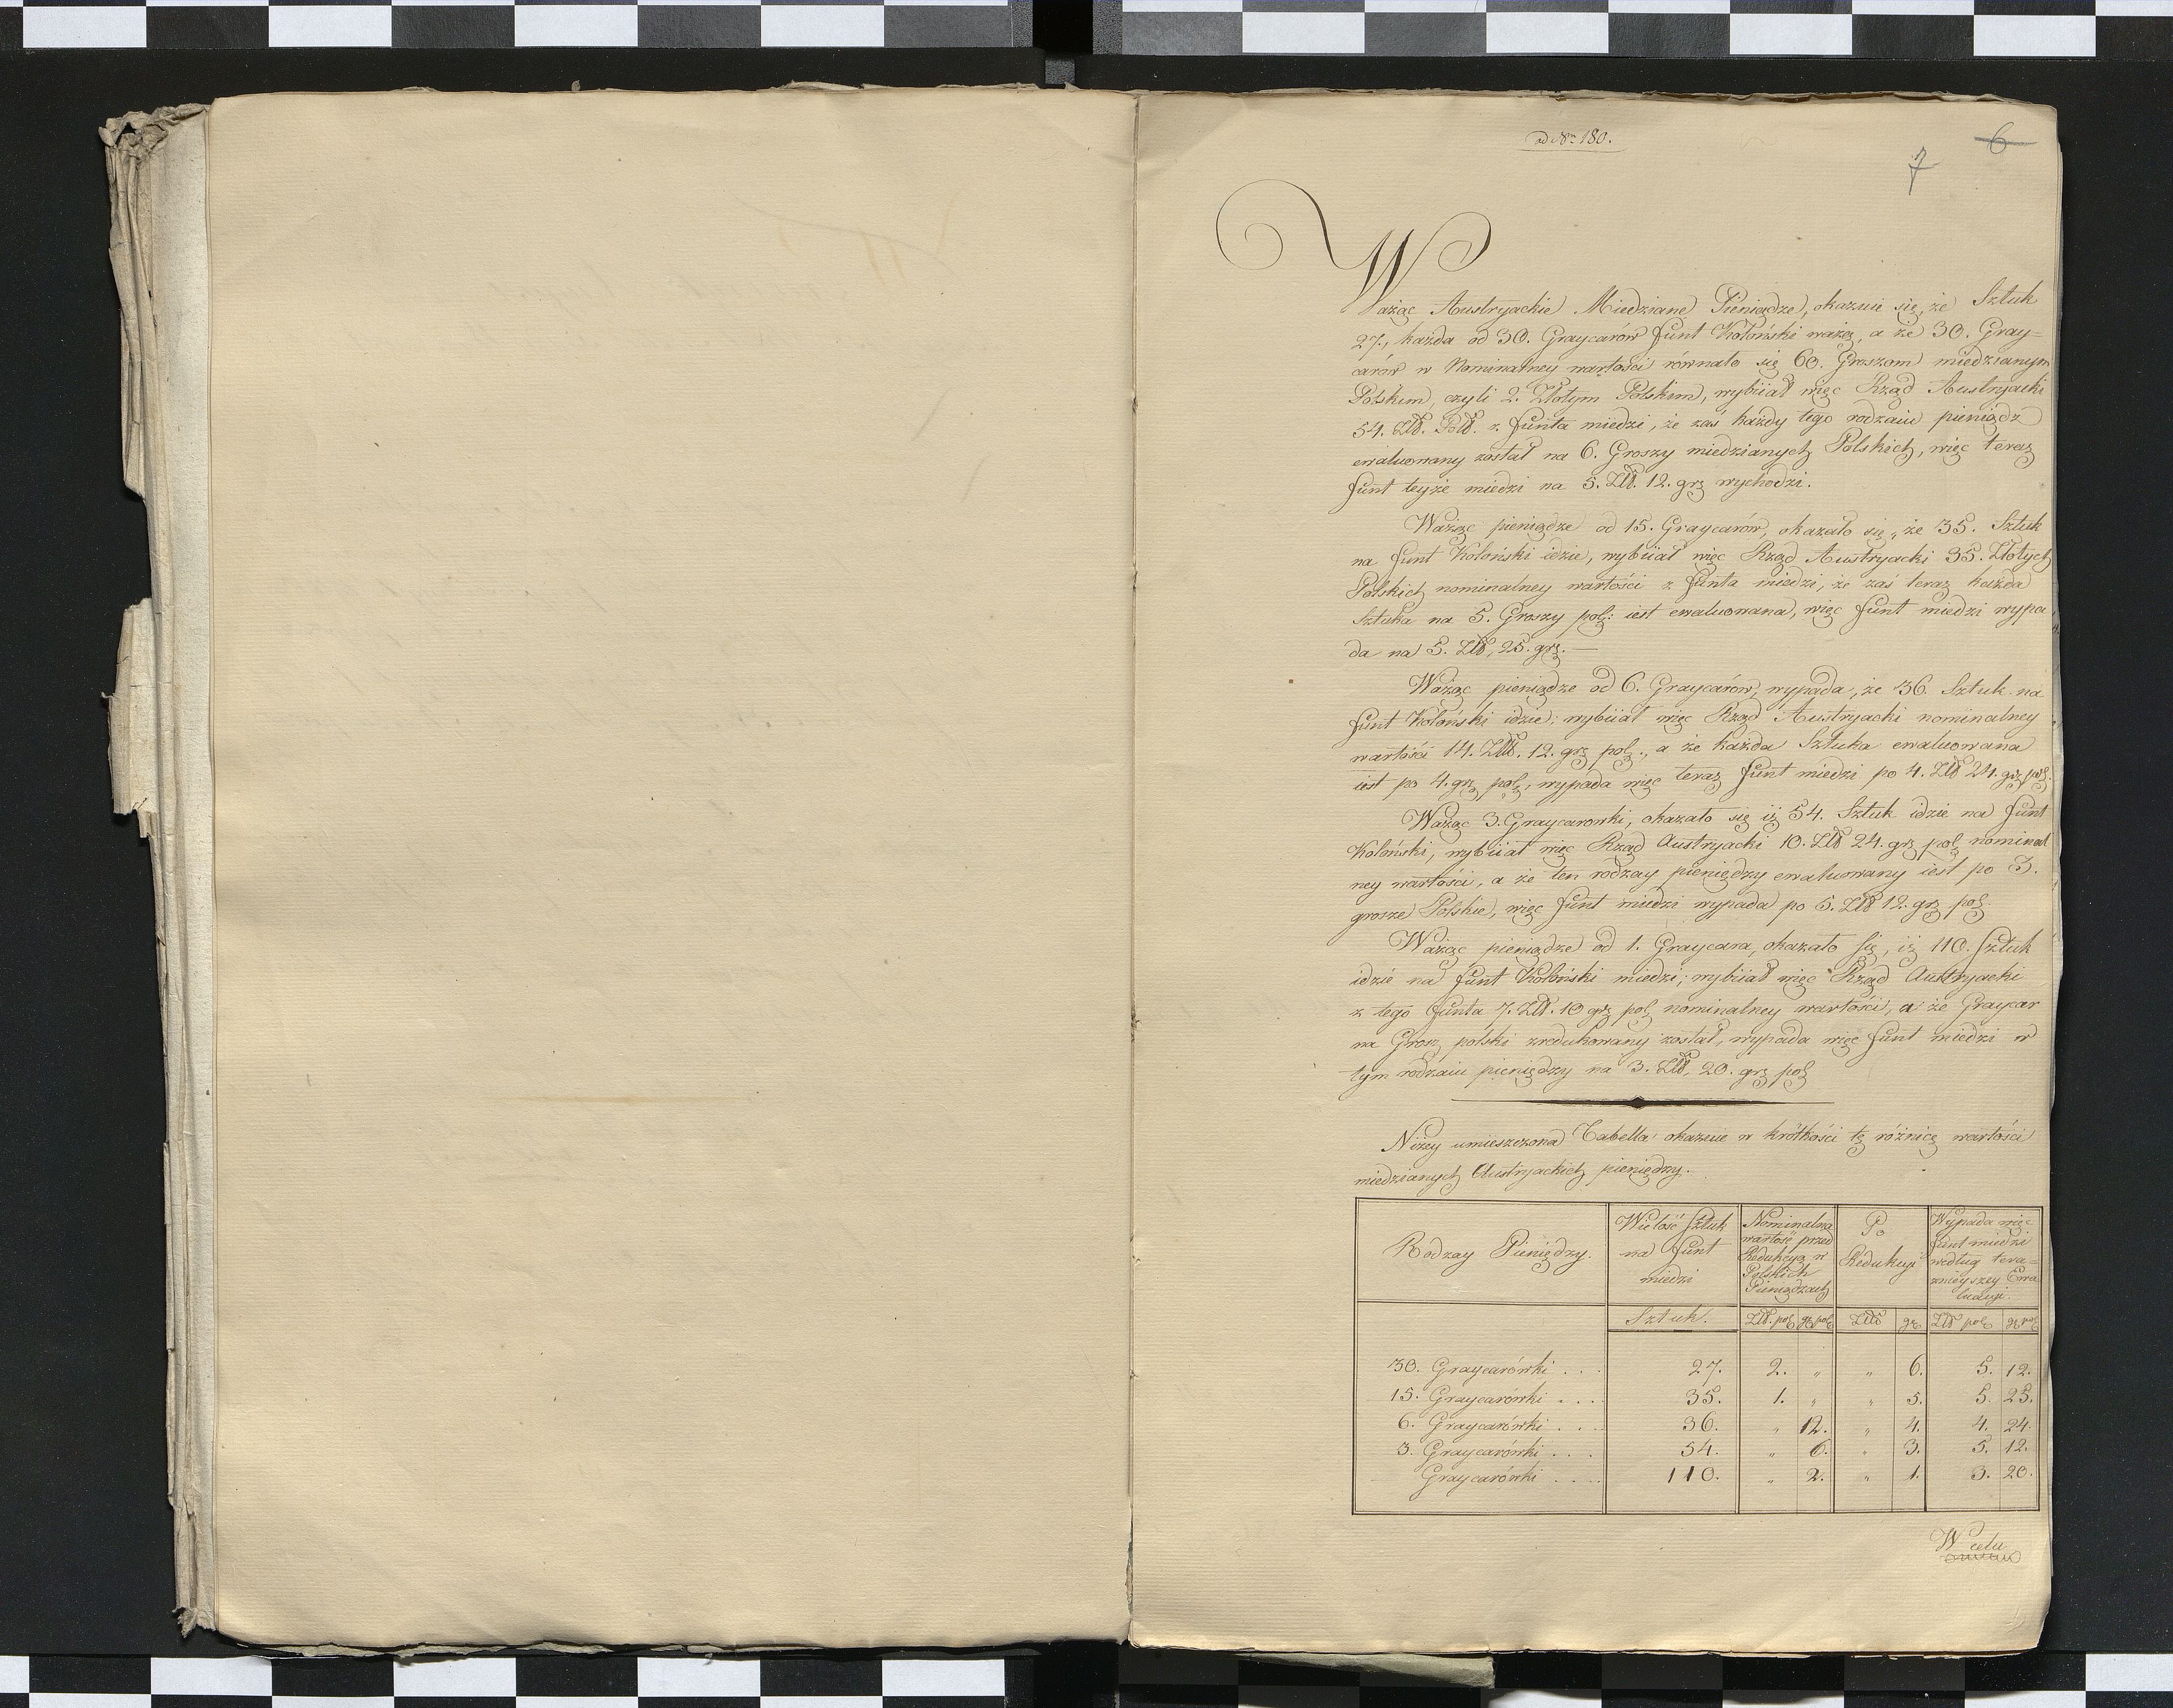 ad Nrm 180.
6
7
Ważąc Austryackie Miedziane Pieniądze, okazuie się, że Sztuk
27., każda od 30. Graycarów Funt Koloński ważą, a że 30. Gray=
carów w Nominalney wartości równało się 60. Groszom miedzianym
Polskim, czyli 2. Złotym Polskim, wybiiał więc Rząd Austryacki
54. Złł. Poll. z Funta miedzi, że zaś każdy tego rodzaiu pieniądz
ewaluowany został na 6. Groszy miedzianych Polskich, więc teraz
Funt teyże miedzi na 5. Złł. 12. grz wychodzi.
Ważąc pieniądze od 15. Graycarów, okazało się, że 35. Sztuk
na Funt Koloński idzie, wybiiał więc Rząd Austryacki 35. Złotych
Polskich nominalney wartości z Funta miedzi, że zaś teraz każda
Sztuka na 5. Groszy pol: iest ewaluowana, więc Funt miedzi wypa
da na 5. Złł, 25. grz. —
Ważąc pieniądze od 6. Graycarów, wypada, że 36. Sztuk na
Funt Koloński idzie; wybiiał więc Rząd Austryacki nominalney
wartości 14. Złł. 12. grz pol., a że każda Sztuka ewaluowana
iest po 4. grz pol, wypada więc teraz Funt miedzi po 4. Złł 24. grz pol.
Ważąc 3. Graycarowki, okazało się iż 54. Sztuk idzie na Funt
Koloński, wybiiał więc Rząd Austryacki 10. Złł 24. grz pol nominal
ney wartości, a że ten rodzay pieniędzy ewaluowany iest po 3.
grosze Polskie, więc Funt miedzi wypada po 5. Złł 12. grz pol.
Ważąc pieniądze od 1. Graycara, okazało się, iż 110. Sztuk
idzie na Funt Koloński miedzi; wybiiał więc Rząd Austryacki
z tego Funta 7. Złł. 10 grz pol nominalney wartości, a że Graycar
na Grosz polski zredukowany został, wypada więc Funt miedzi w
tym rodzaiu pieniędzy na 3. Złł, 20. grz pol
Niżey umieszczona Tabella okazuie w krótkości tę różnicę wartości
miedzianych Austryackich pieniędzy.
Rodzay Pieniędzy.
Wielość Sztuk
na Funt
miedzi
Nominalna
wartość przed
Redukcyą w
Polskich
Pieniądzach
Po
Redukcyi
Wypada więc
funt miedzi
według tera=
znieyszey Ewa
luacyi.
Sztuk. Złł. pol grz pol Złł grz Złł pol grz pol
30. Graycarówki . . . 27. 2. „ „ 6. 5. 12.
15. Graycarówki . . . 35. 1. „ „ 5. 5. 25.
6. Graycarówki . . . 36. „ 12. „ 4. 4. 24.
3. Graycarówki . . . 54. „ 6. „ 3. 5. 12.
Graycarówki . . . . 110. „ 2. „ 1. 3. 20.
W celu